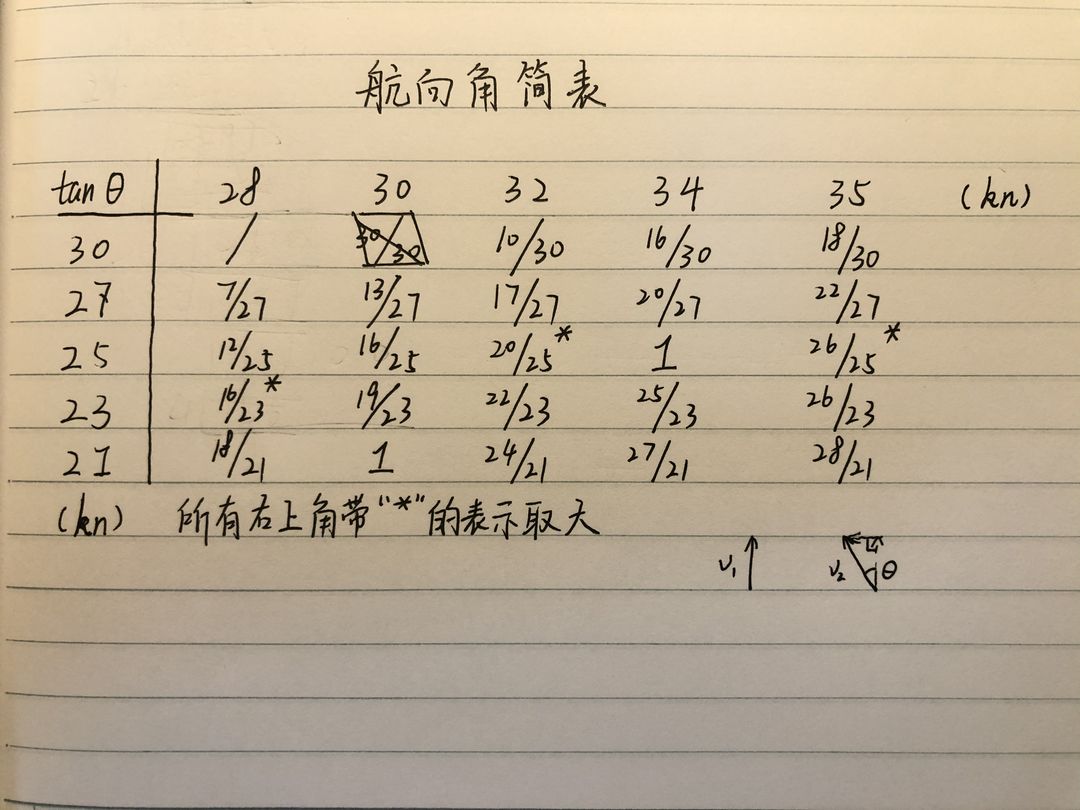 航向角简表
tanθ 28 30 32 34 35 (kn)
30 / 30/30 10/30 16/30 18/30
27 7/27 13/27 17/27 20/27 22/27
25 12/25 16/25 20/25* 1 26/25*
23 16/23* 19/23 22/23 25/23 26/23
21 18/21 1 24/21 27/21 28/21
(kn) 所有右上角带“*”的表示取大
v₁ v₂ θ